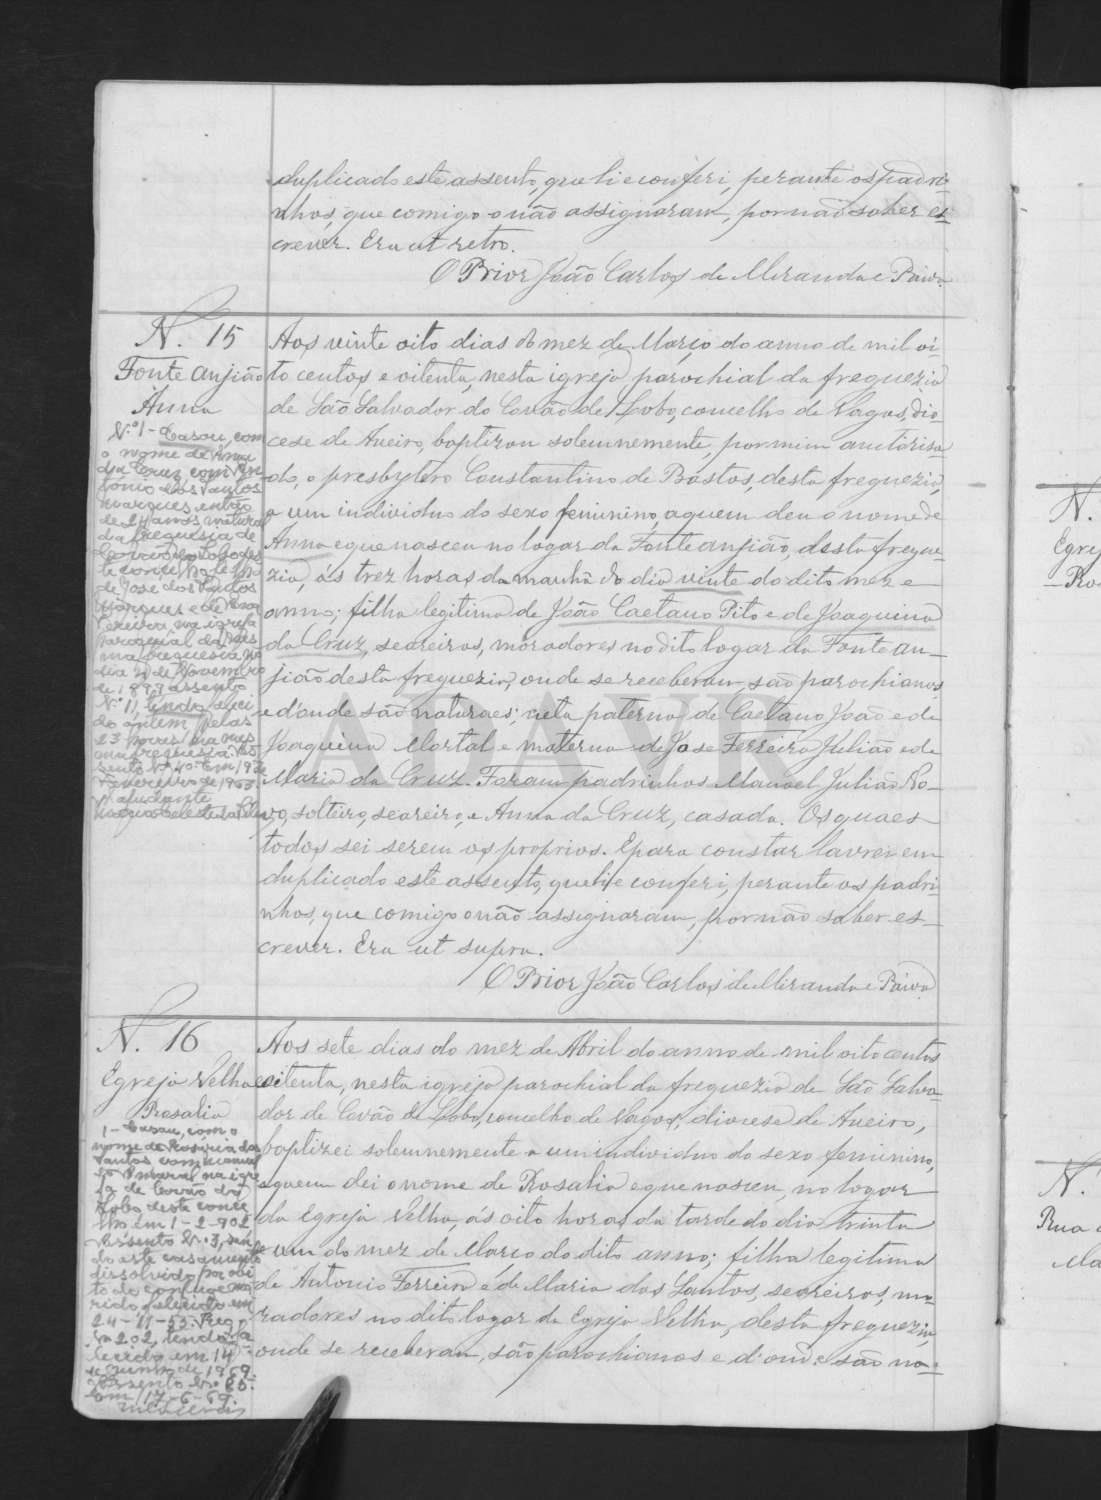 duplicado este assento, que li e conferi, perante os padri-
nhos, que comigo o não assignaram, por não saber es-
crever. Era ut retro.
O Prior João Carlos de Miranda e Paiva
N. 15
Fonte anjião
Anna
Aos vinte oito dias do mez de Março do anno de mil oi-
to centos e oitenta, nesta igreja parochial da freguezia
de São Salvador do Covão de Lobo, concelho de Vagos, dio-
cese de Aveiro, baptizou solemnemente, por mim auctorisa-
do, o presbytero Constantino de Bastos, desta freguezia,
a um individuo do sexo feminino, a quem deu o nome de
Anna e que nasceu no logar da Fonte anjião, desta fregue-
zia, ás trez horas da manhã do dia vinte do dito mez e
anno; filha legitima de João Caetano Pito e de Joaquina
da Cruz, seareiros, moradores no dito logar da Fonte an-
jião desta freguezia, onde se receberam, são parochianos
e d'onde são naturaes; neta paterna de Caetano João e de
Joaquina Mortal e materna de Jose Ferreira Julião e de
Maria da Cruz. Foram padrinhos Manoel Julião No-
vo, solteiro, seareiro, e Anna da Cruz, casada. Os quaes
todos sei serem os proprios. E para constar lavrei em
duplicado este assento, que li e conferi, perante os padri-
nhos, que comigo o não assignaram, por não saber es-
crever. Era ut supra.
O Prior João Carlos de Miranda e Paiva
N.º 1 - Casou, com
o nome de Anna
da Cruz, com An-
tónio dos Santos
Marques, então
de 24 anos, natural
da freguesia de
Covão do Lobo, des-
te concelho,
de José dos Santos
Marques e de Rosa
Pereira na igreja
Paroquial da mes-
ma freguesia no
dia de Novembro
de 1897, assento
N.º 11, tendo faleci-
do ontem pelas
23 horas na mes-
ma freguesia. As-
sento N.º 40. Em 19 de
Fevereiro de 1953.
O ajudante
N. 16
Egreja Velha
Rosalia
Aos sete dias do mez de Abril do anno de mil oito centos
e oitenta, nesta igreja parochial da freguezia de São Salva-
dor de Covão de Lobo, concelho de Vagos, diocese de Aveiro,
baptizei solemnemente a um individuo do sexo feminino,
a quem dei o nome de Rosalia e que nasceu, no logar
da Egreja Velha, ás oito horas da tarde do dia trinta
e um do mez de Março do dito anno; filha legitima
de Antonio Ferreira e de Maria dos Santos, seareiros, mo-
radores no dito logar da Egreja Velha, desta freguezia,
onde se receberam, são parochianos e d'onde são na-
1 - Casou, com o
nome de Rosária dos
Santos com Manuel
na igre-
ja de Covão do
Lobo, deste conce-
lho em 1-2-902
Assento N.º 3, sen-
do este casamento
dissolvido por óbi-
to do conjuge ma-
rido, falecido em
24-11-52. Reg.º
N.º 202, tendo fa-
lecido em 14
de Junho de 1969.
Assento N.º 85.
Em 17-6-69.
ADAVR
N.
Egrej
Ro
N.
Rua
Ma